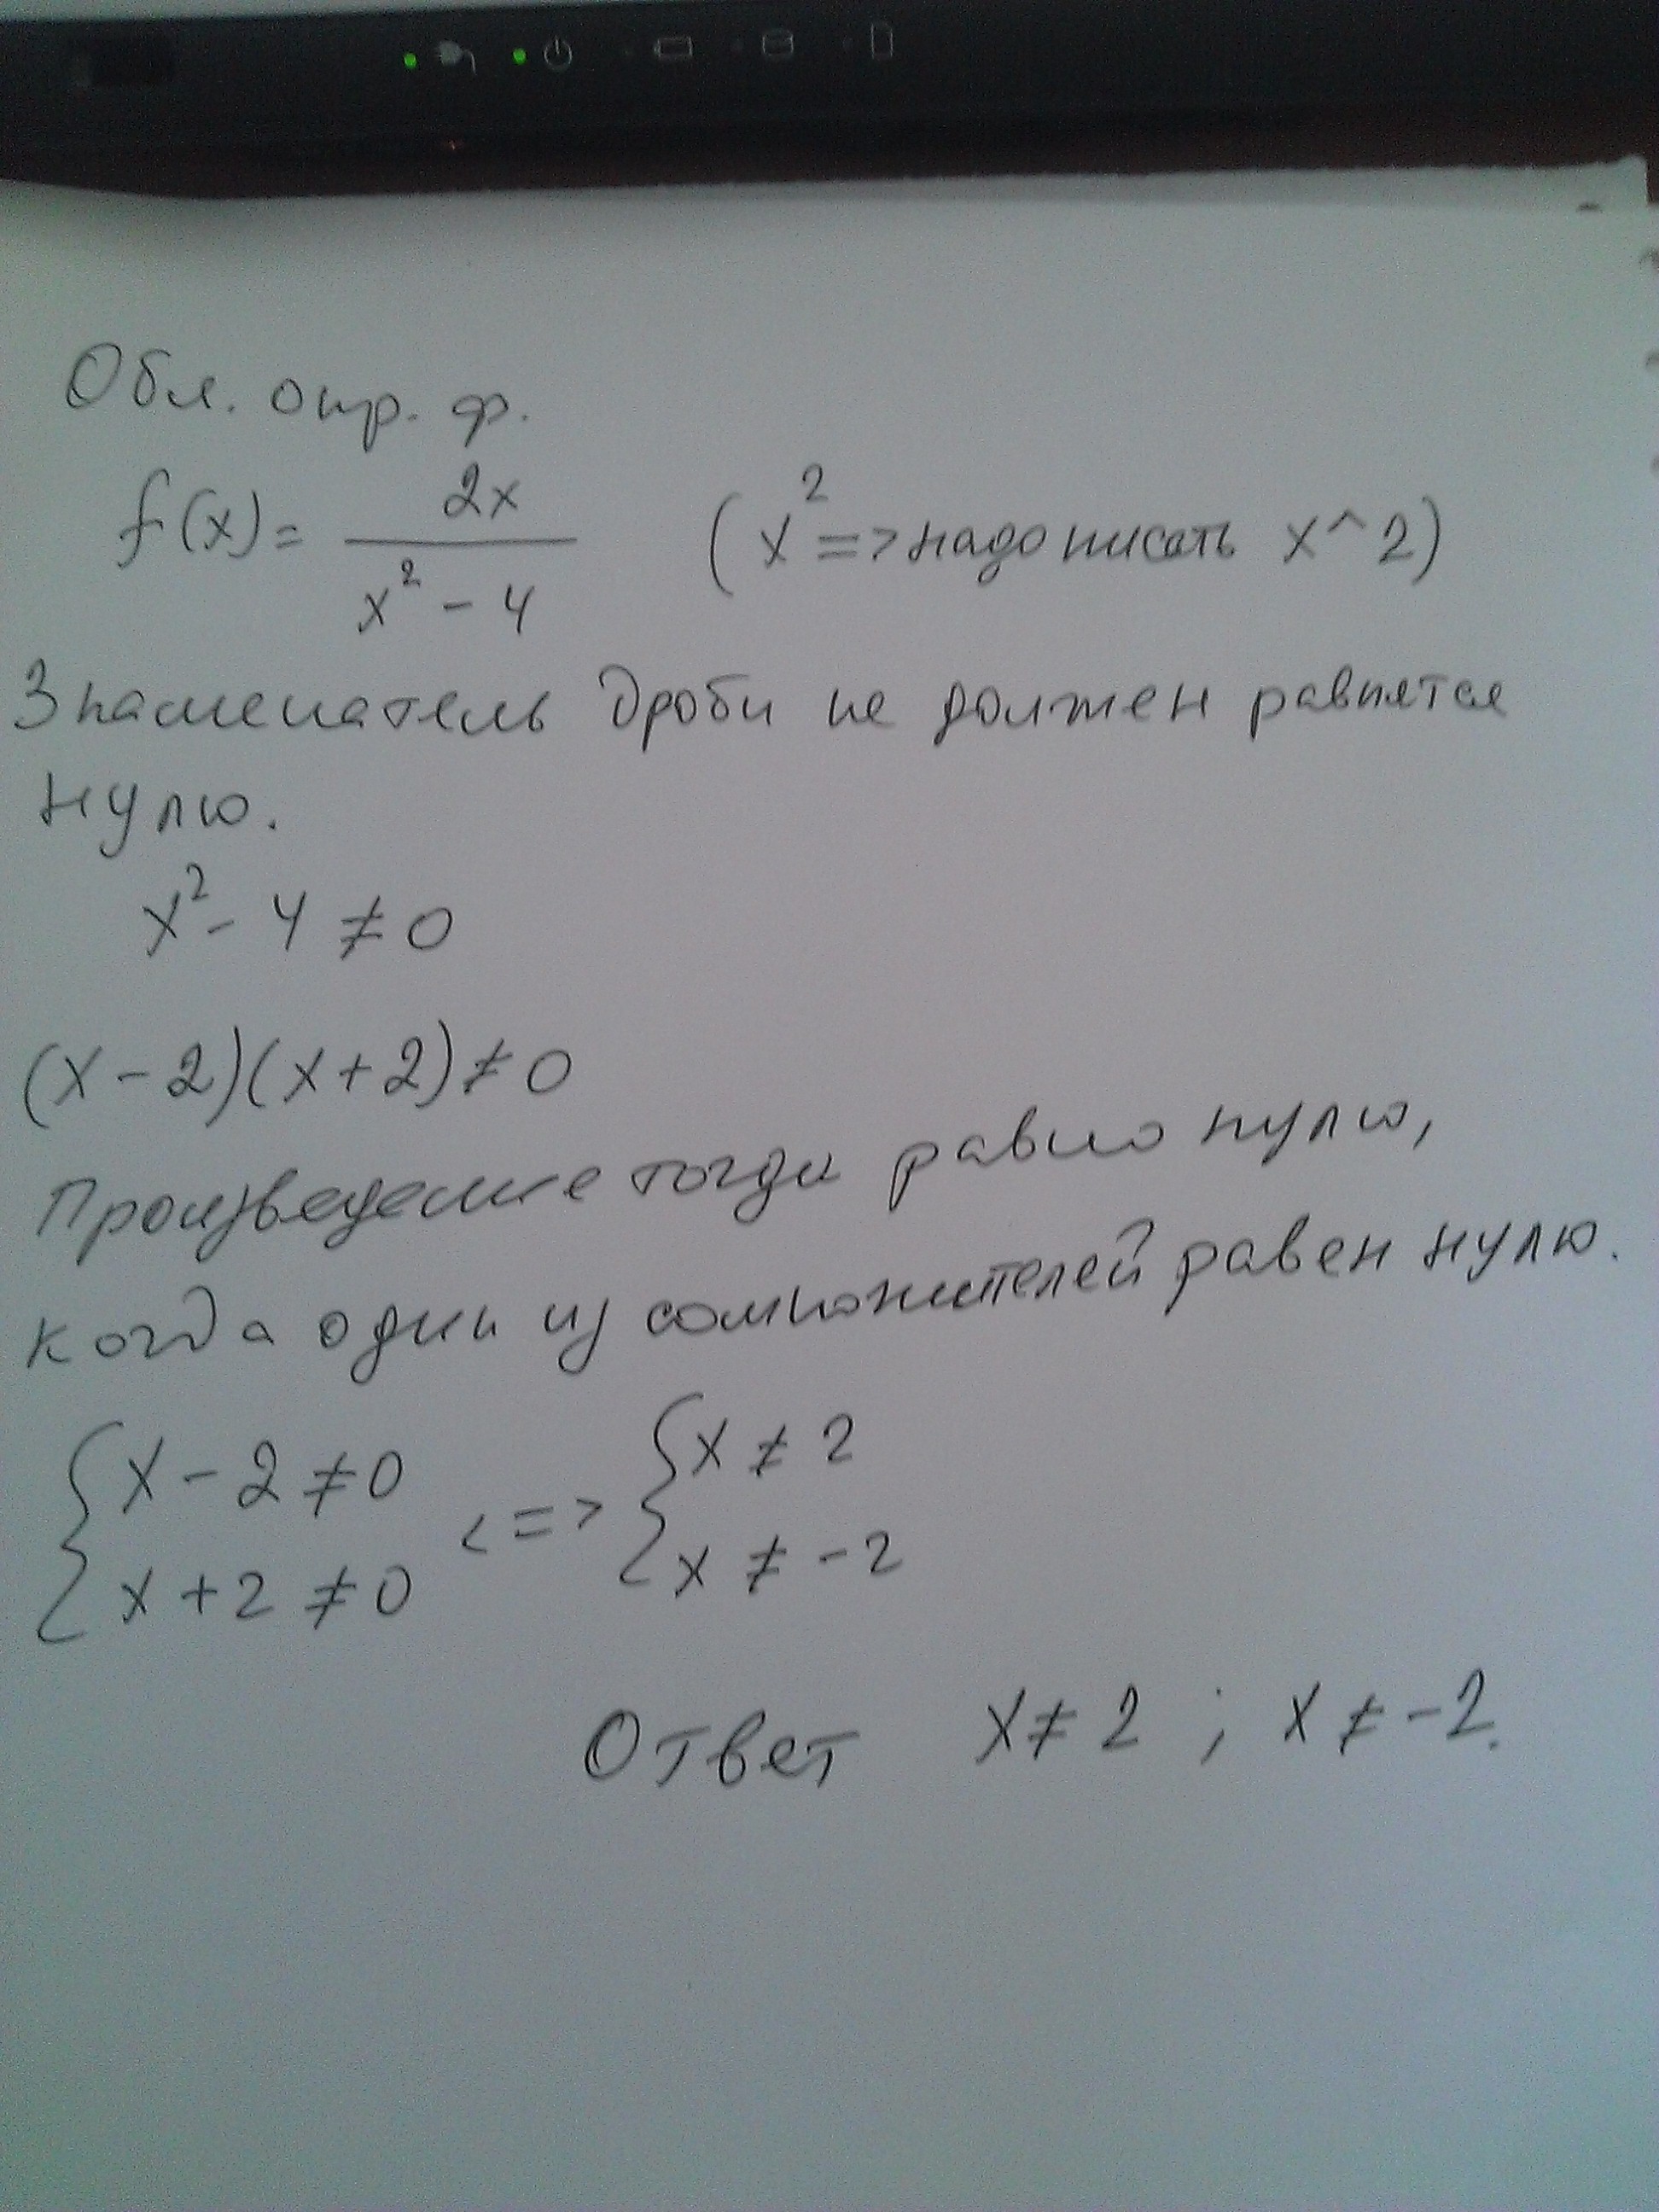 Обл. опр. ф.
f(x) = 2x / (x² - 4) (x² => надо писать x^2)
Знаменатель дроби не должен равнятся
нулю.
x² - 4 ≠ 0
(x - 2)(x + 2) ≠ 0
Произведение тогда равно нулю,
когда один из сомножителей равен нулю.
{ x - 2 ≠ 0 <=> { x ≠ 2
{ x + 2 ≠ 0 { x ≠ -2
Ответ x ≠ 2 ; x ≠ -2.